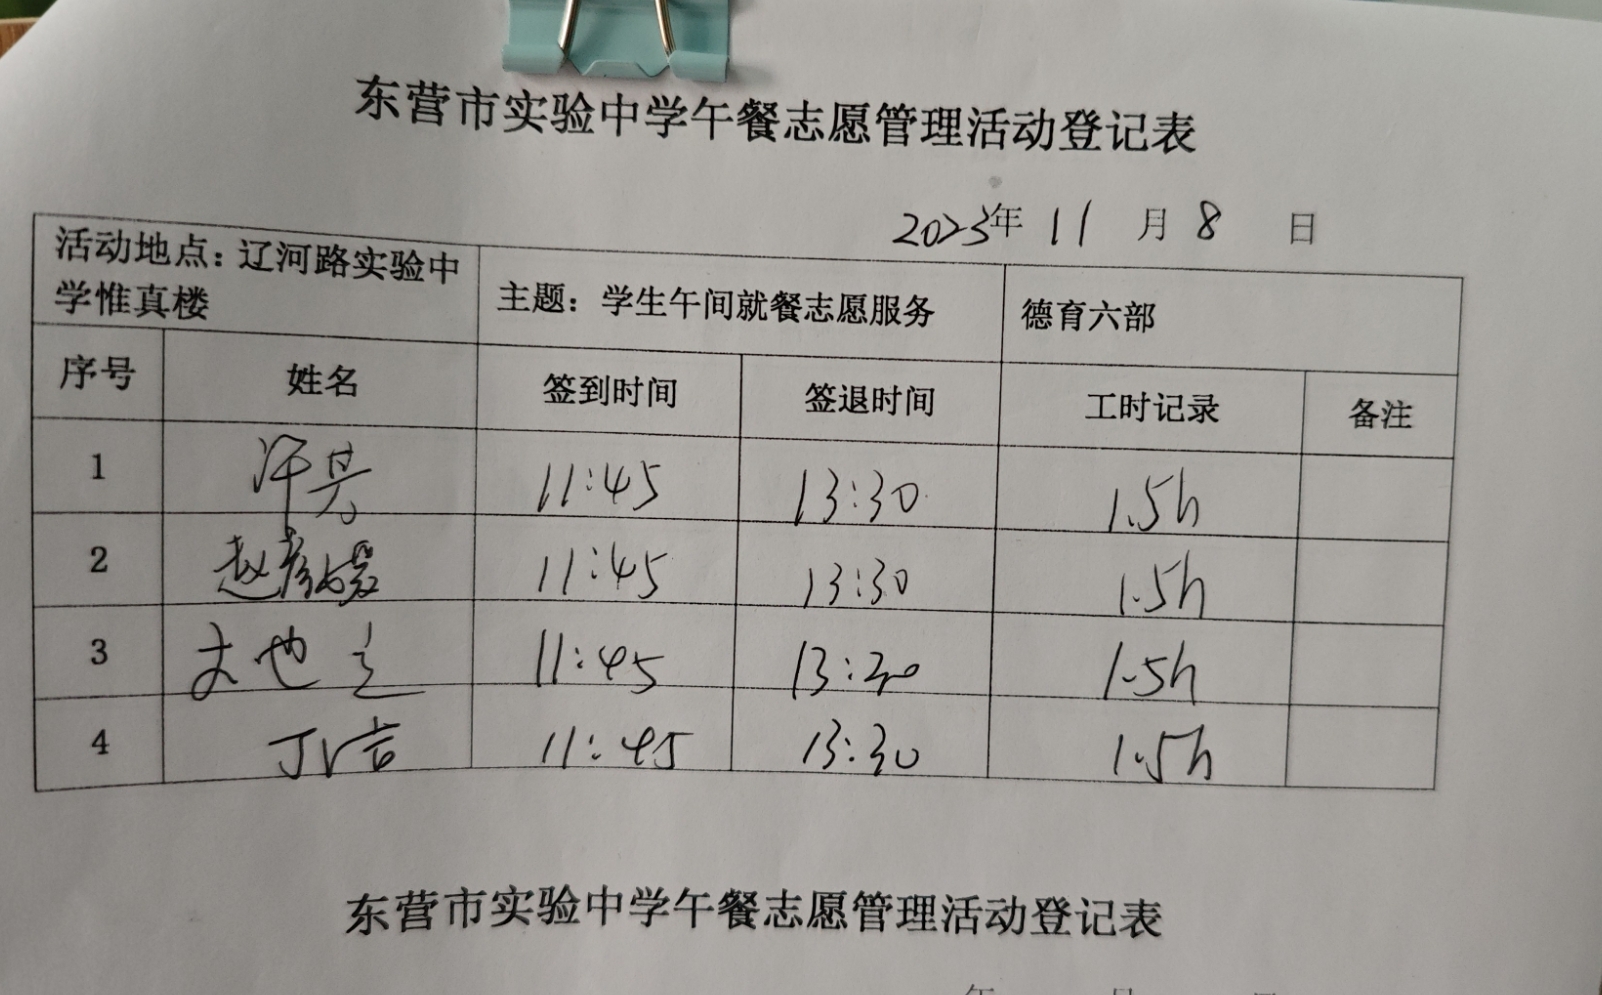 东营市实验中学午餐志愿管理活动登记表
2023年 11 月 8 日
活动地点：辽河路实验中学惟真楼 主题：学生午间就餐志愿服务 德育六部
序号 姓名 签到时间 签退时间 工时记录 备注
1 11:45 13:30 1.5h
2 赵彦媛 11:45 13:30 1.5h
3 11:45 13:30 1.5h
4 11:45 13:30 1.5h
东营市实验中学午餐志愿管理活动登记表